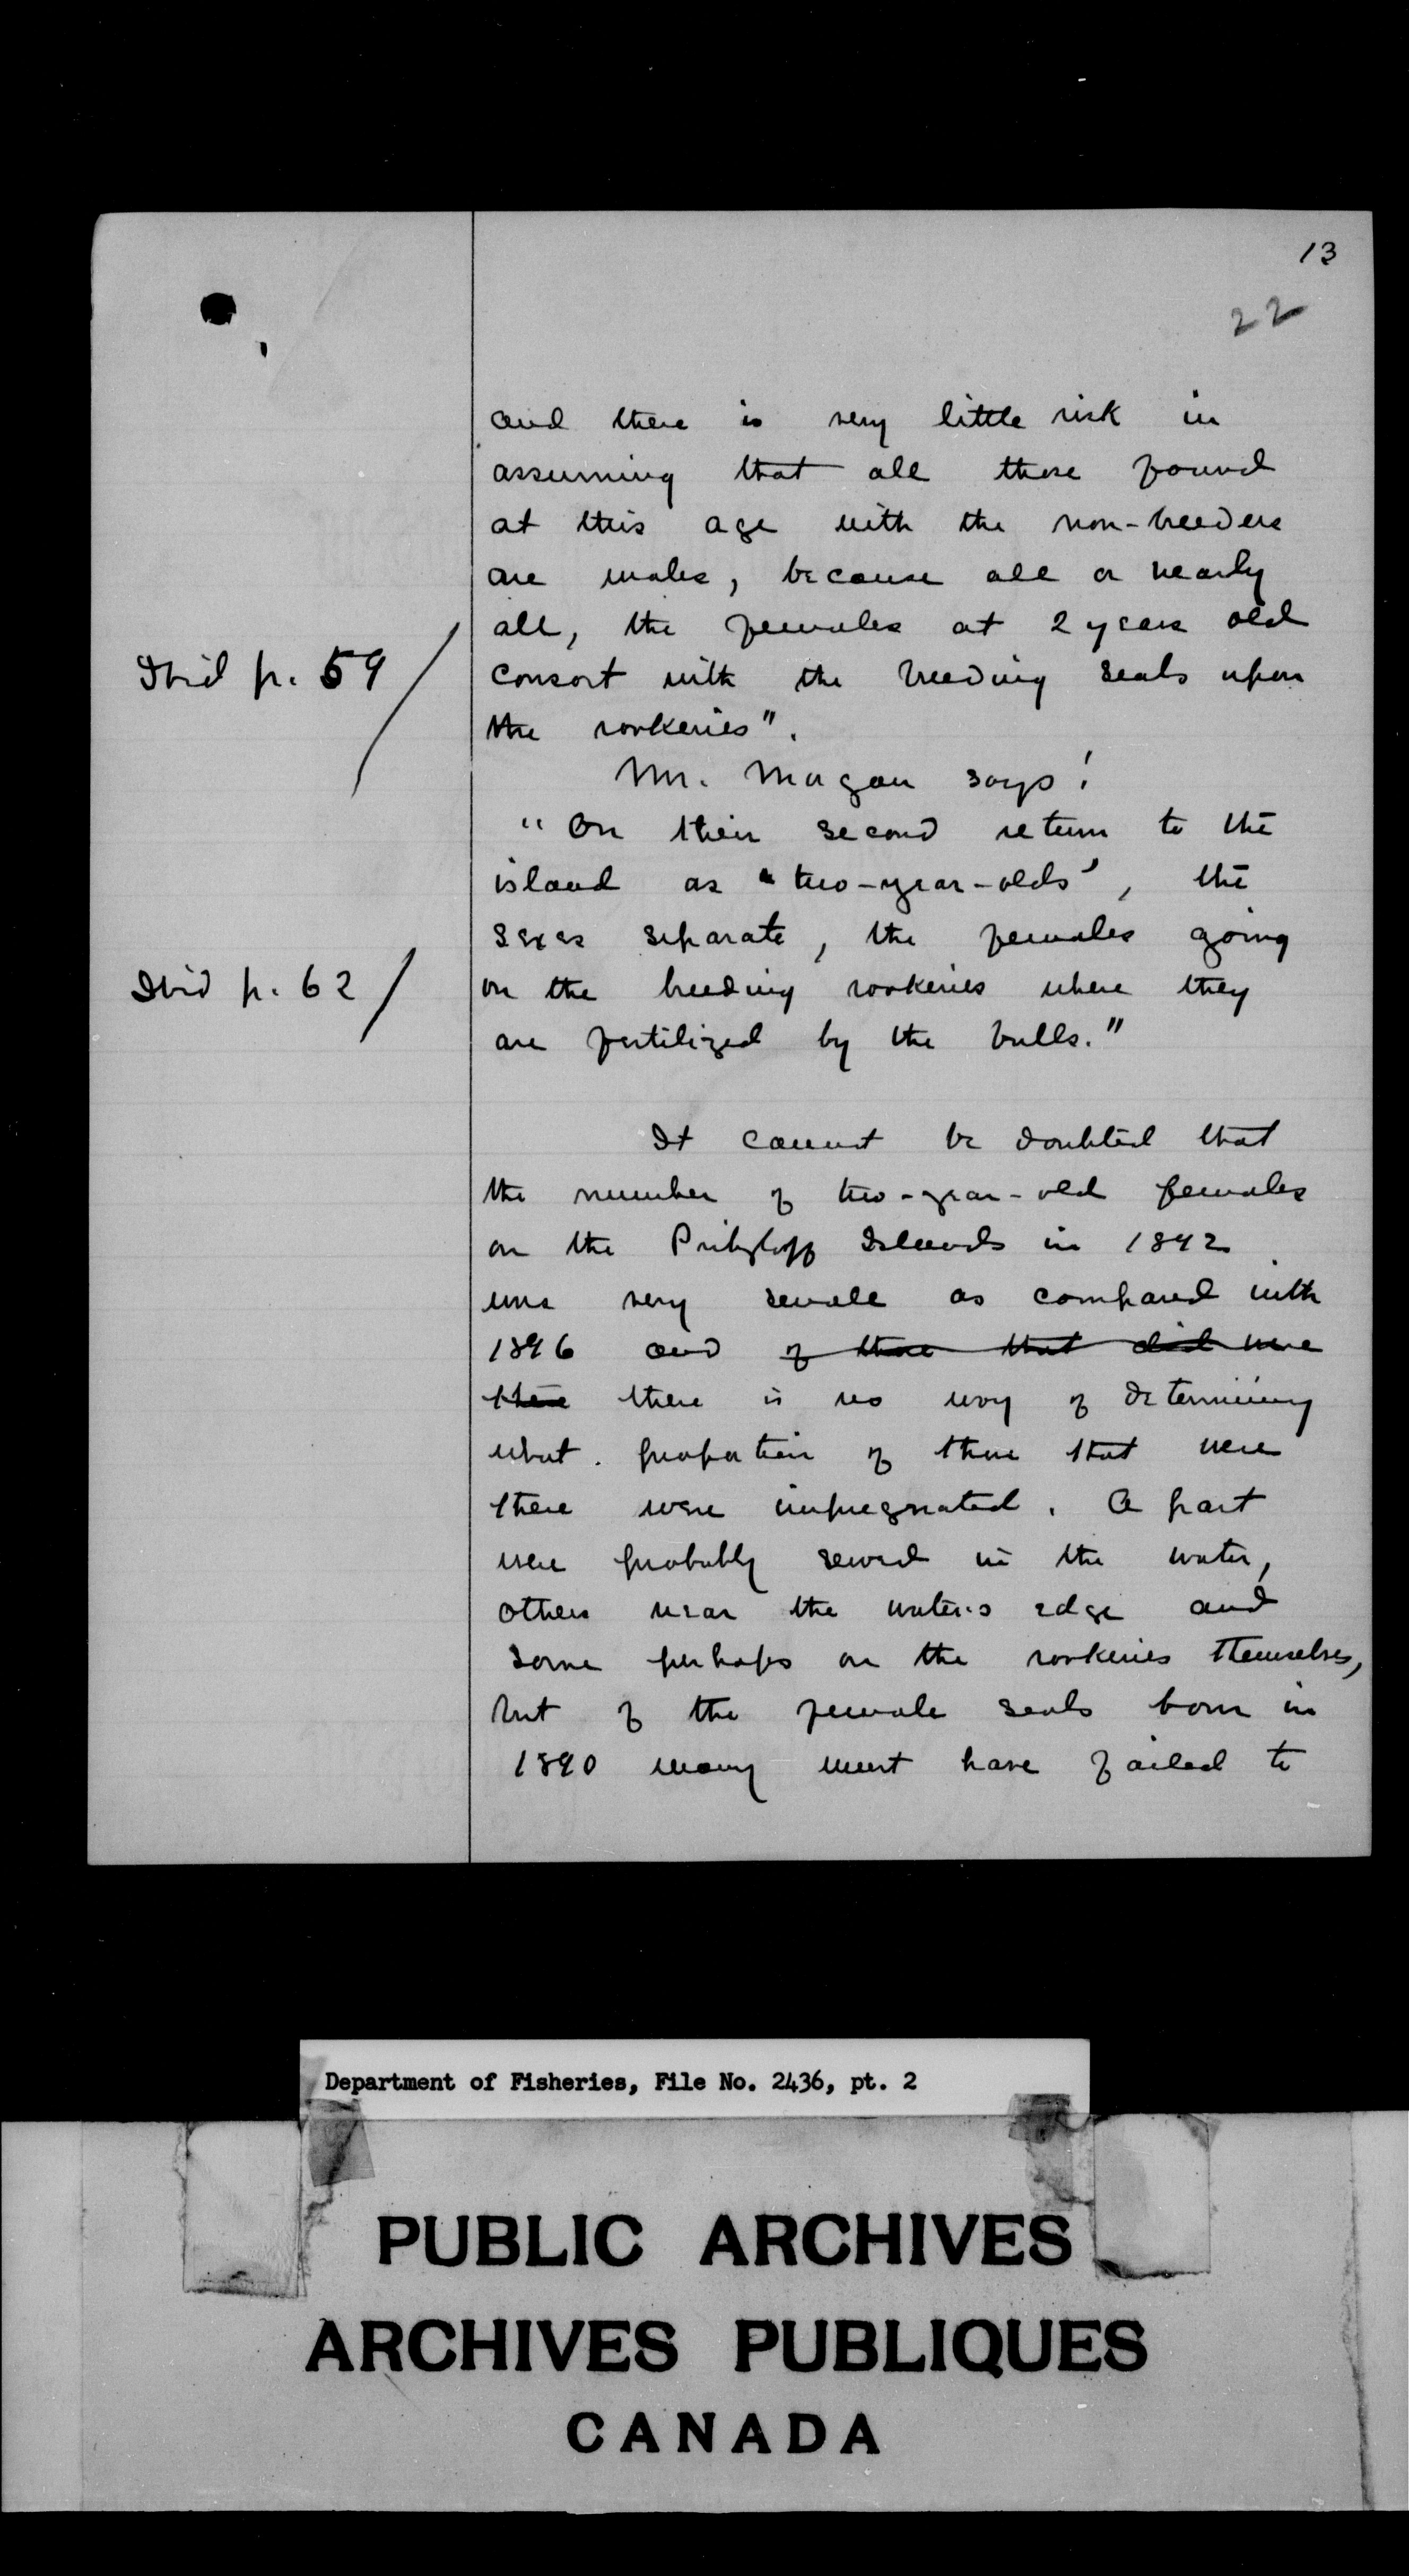 13
22
and there is very little risk in
assuming that all those found
at this age with the non-breeders
are males, because all or nearly
all, the females at 2 years old
Ibid p. 59 /
consort with the breeding seals upon
the rookeries".
Mr. Magan says:
"On their second return to the
island as "two-year-olds', the
sexes separate, the females going
Ibid p. 62 /
on the breeding rookeries where they
are fertilized by the bulls."
It cannot be doubted that
the number of two-year-old females
on the Pribyloff Islands in 1892
was very small as compared with
1896 and of those that did were
there there is no way of determining
what proportion of those that were
there were impregnated. A part
were probably served in the water,
others near the water's edge and
some perhaps on the rookeries themselves,
but of the female seals born in
1890 many must have failed to
Department of Fisheries, File No. 2436, pt. 2
PUBLIC ARCHIVES
ARCHIVES PUBLIQUES
CANADA